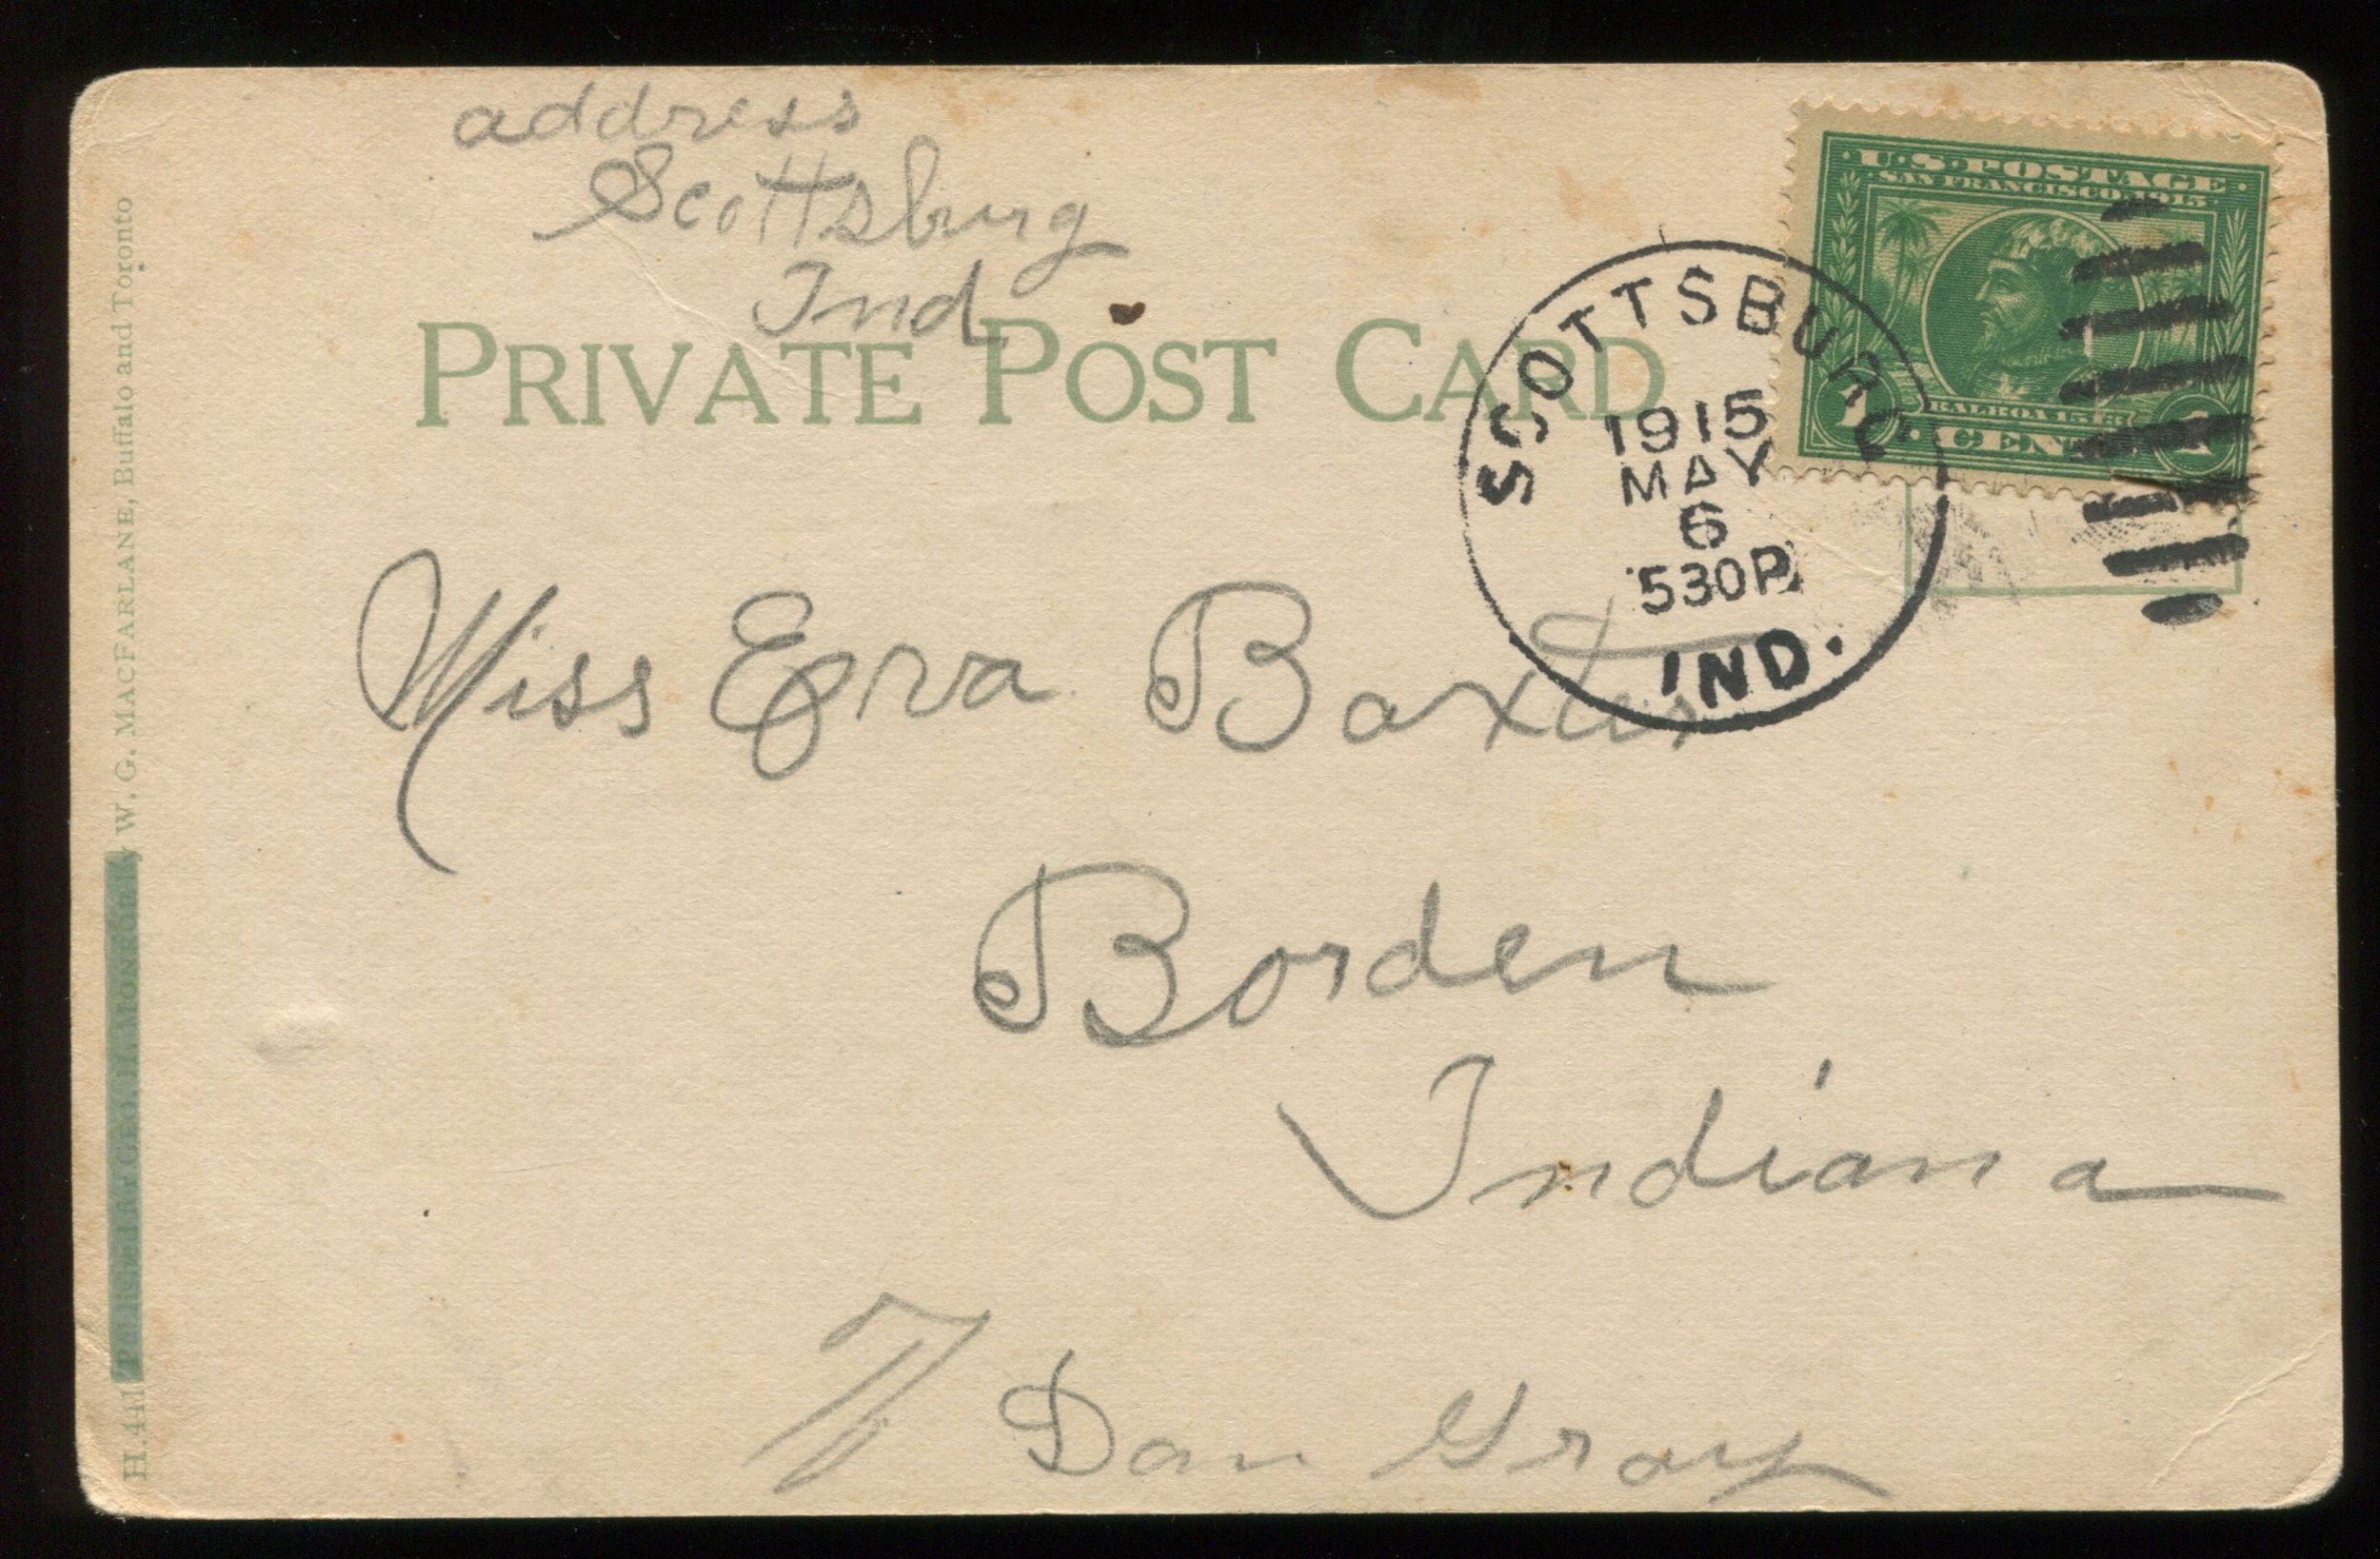 address
Scottsburg
Ind
PRIVATE POST CARD
U.S. POSTAGE
SAN FRANCISCO 1915
BALBOA 1513
1 CENT 1
SCOTTSBURG
1915
MAY
6
530P
IND.
Miss Erva Baxter
Borden
Indiana
Dan Gray
H.441 Published for GEO. H. MONROE by W. G. MACFARLANE, Buffalo and Toronto